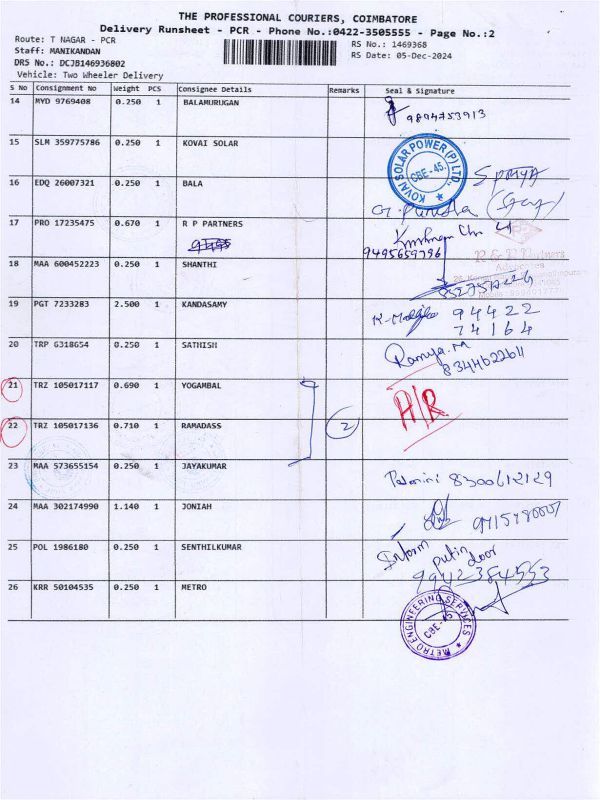 THE PROFESSIONAL COURIERS, COIMBATORE
Delivery Runsheet - PCR - Phone No.:0422-3505555 - Page No.:2
Route: T NAGAR - PCR
Staff: MANIKANDAN
DRS No.: DCJB146936802
Vehicle: Two Wheeler Delivery
RS No.: 1469368
RS Date: 05-Dec-2024
S No Consignment No Weight PCS Consignee Details Remarks Seal & Signature
14 MYD 9769408 0.250 1 BALAMURUGAN 9894753913
15 SLM 359775786 0.250 1 KOVAI SOLAR
KOVAI SOLAR POWER (P) LTD., CBE-45.
16 EDQ 26007321 0.250 1 BALA
17 PRO 17235475 0.670 1 R P PARTNERS
9495659796
R & P Partners
18 MAA 600452223 0.250 1 SHANTHI
19 PGT 7233283 2.500 1 KANDASAMY 94422
74164
20 TRP 6318654 0.250 1 SATHISH Ramya.M
8344622611
21 TRZ 105017117 0.690 1 YOGAMBAL A/R
22 TRZ 105017136 0.710 1 RAMADASS 2
23 MAA 573655154 0.250 1 JAYAKUMAR 8300612129
24 MAA 302174990 1.140 1 JONIAH
25 POL 1986180 0.250 1 SENTHILKUMAR Inform putin door
9942384553
26 KRR 50104535 0.250 1 METRO
METRO ENGINEERING SERVICES CBE-45